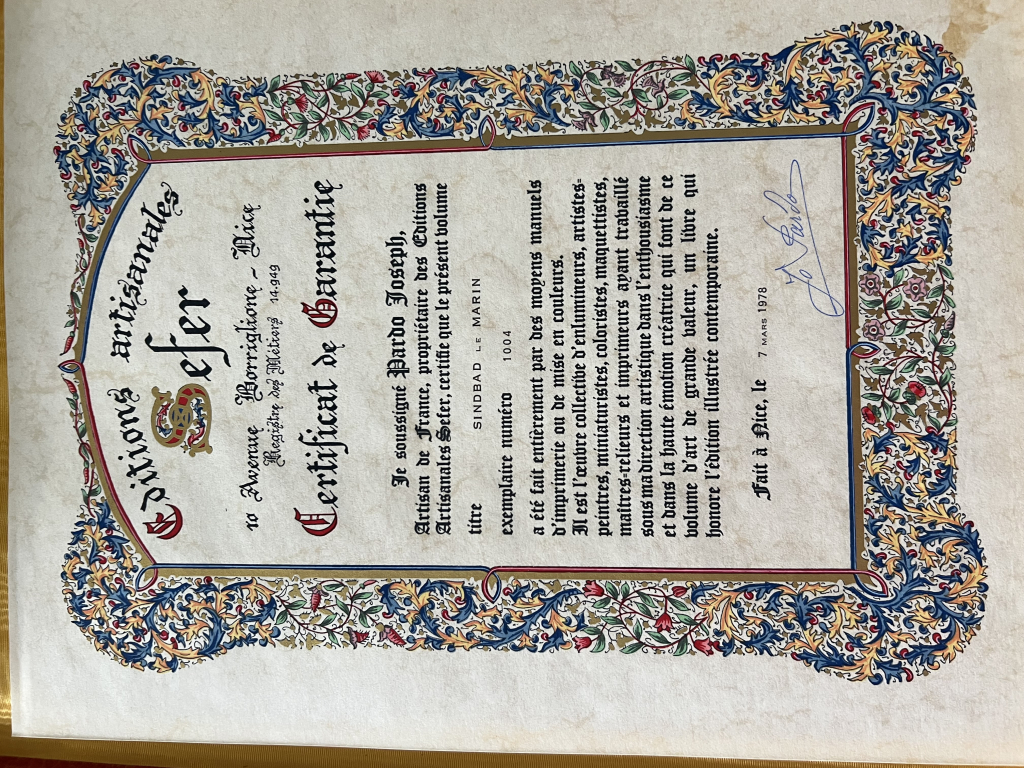 Editions artisanales
Sefer
10 Avenue Borriglione - Nice
Registre des Métiers 14.949
Certificat de Garantie
Je soussigné Pardo Joseph,
Artisan de France, propriétaire des Editions
Artisanales Sefer, certifie que le présent volume
titre SINDBAD LE MARIN
exemplaire numéro 1004
a été fait entièrement par des moyens manuels
d'imprimerie ou de mise en couleurs.
Il est l'œuvre collective d'enlumineurs, artistes-
peintres, miniaturistes, coloristes, maquettistes,
maîtres-relieurs et imprimeurs ayant travaillé
sous ma direction artistique dans l'enthousiasme
et dans la haute émotion créatrice qui font de ce
volume d'art de grande valeur, un livre qui
honore l'édition illustrée contemporaine.
Fait à Nice, le 7 MARS 1978
Jo Pardo